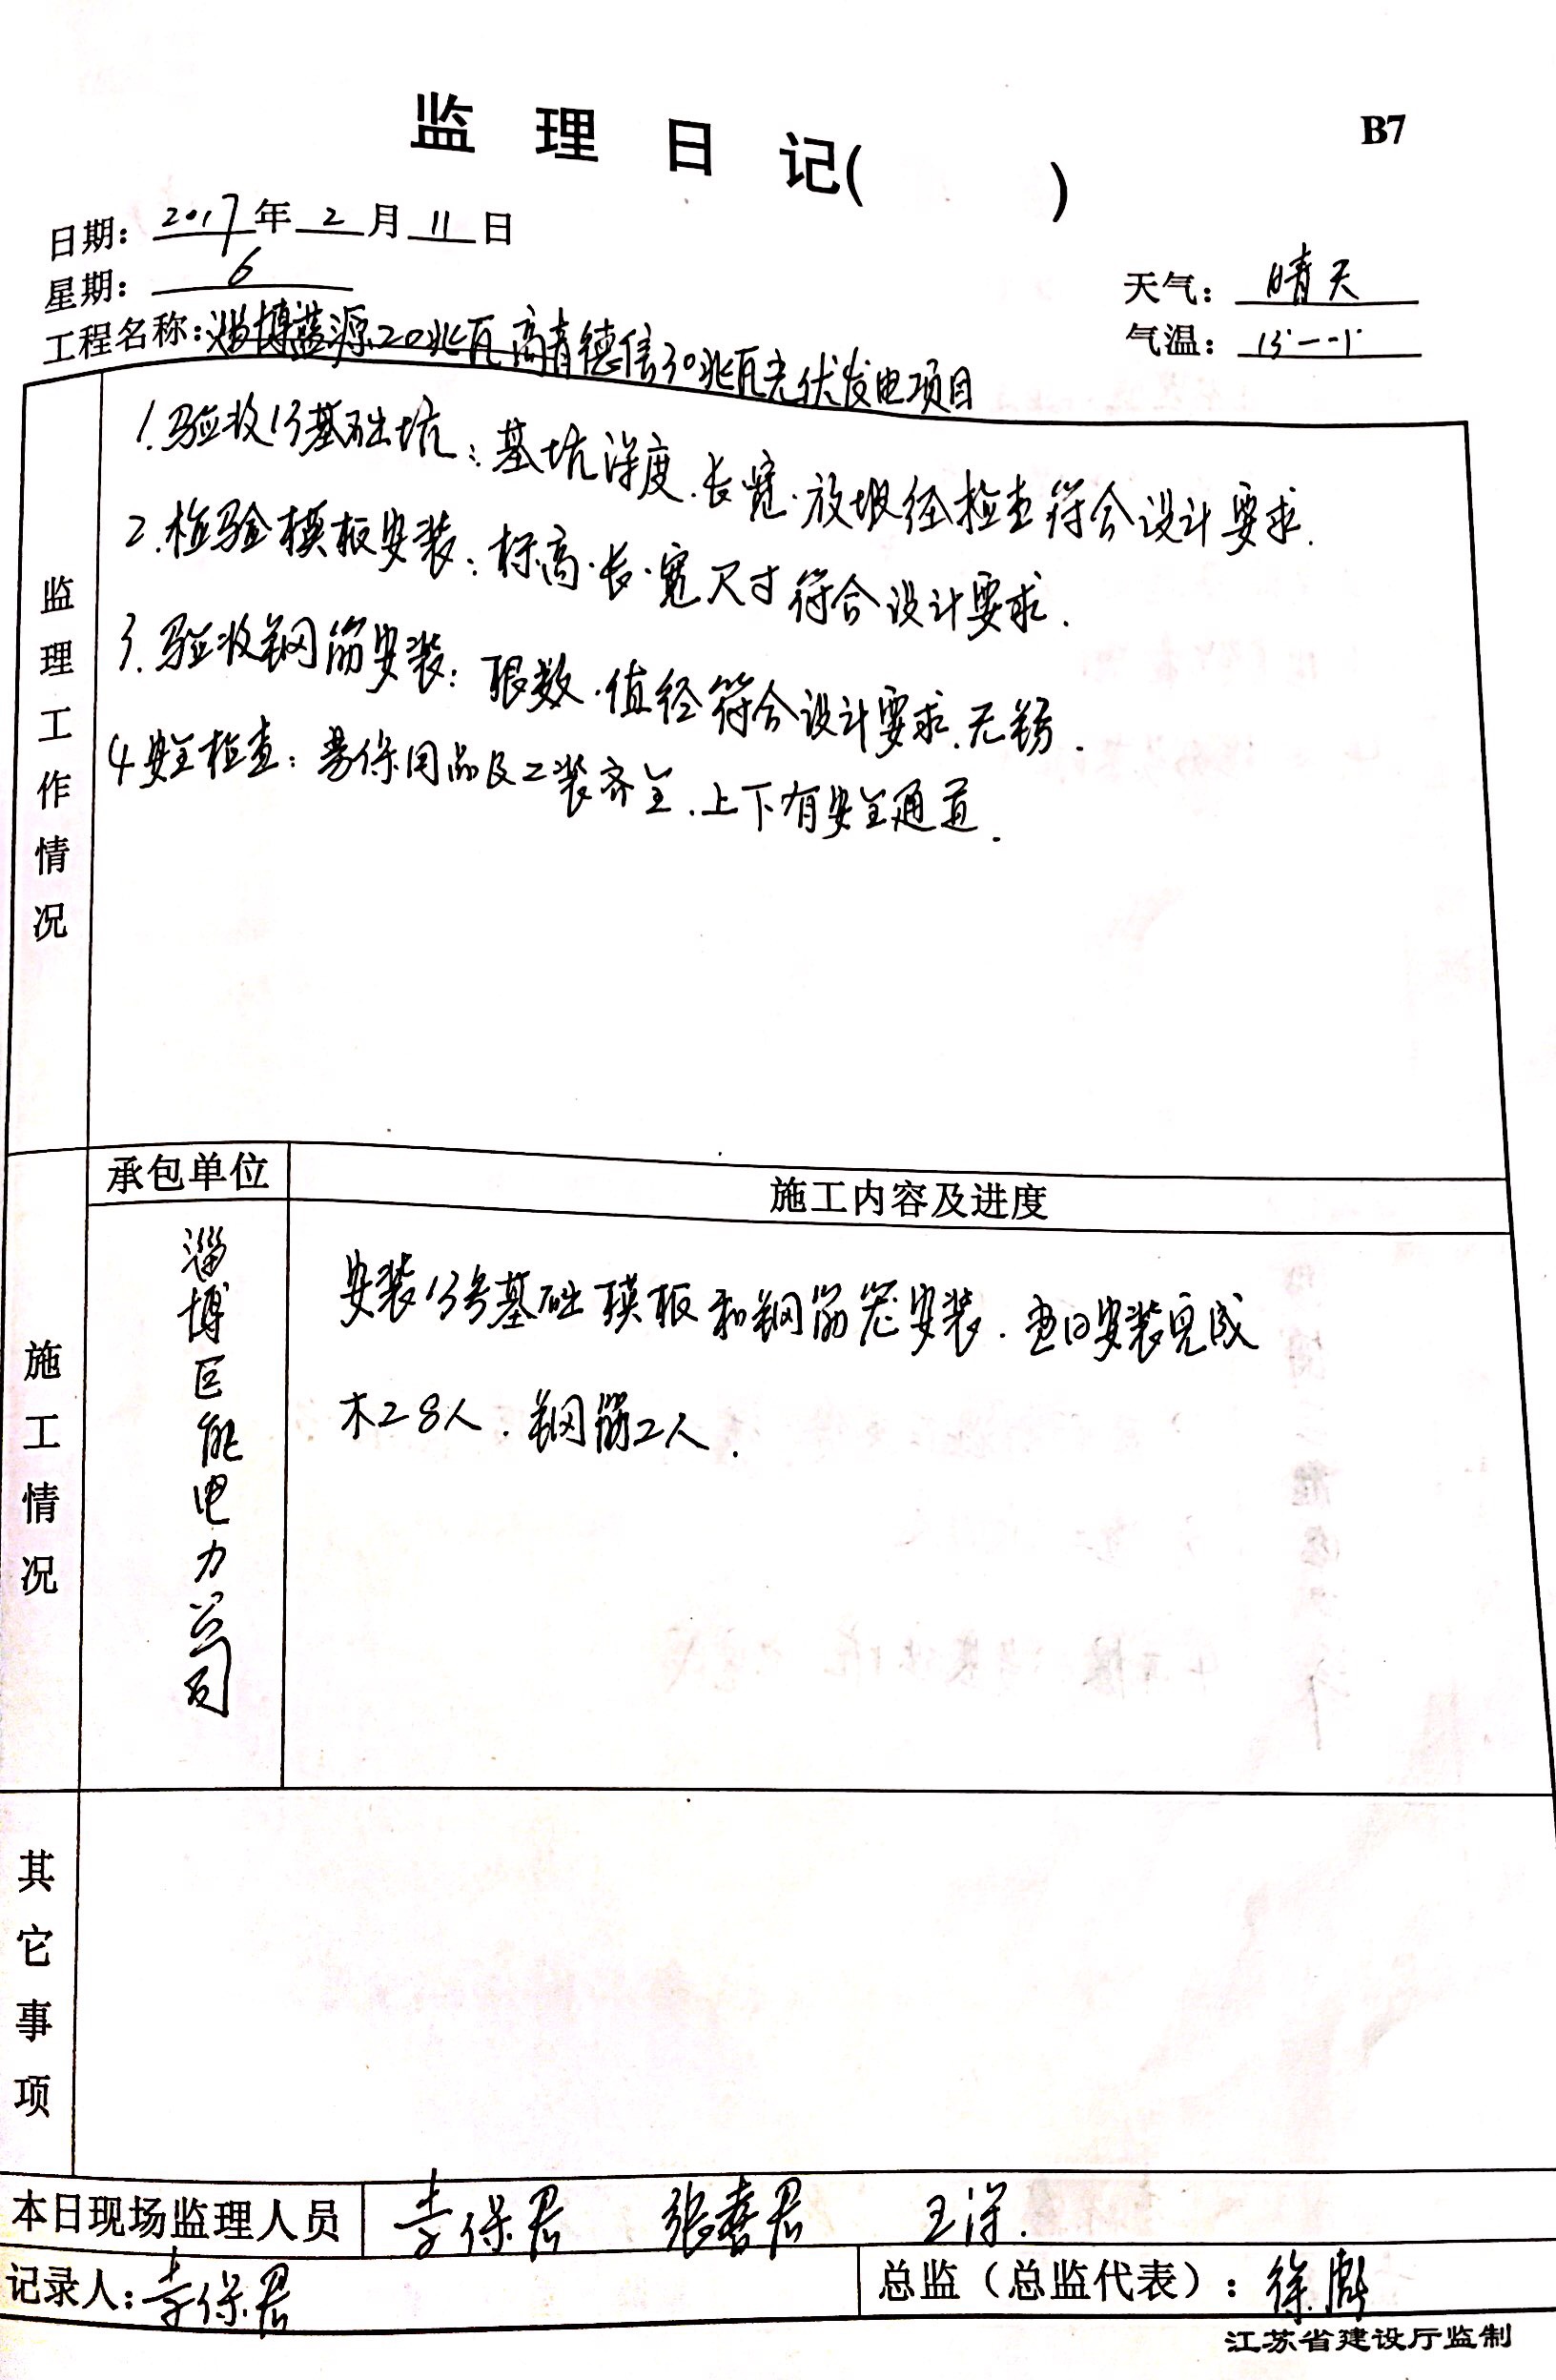 监理日记(          )
B7
日期: 2017年 2 月 11 日
星期: 6
天气: 晴天
气温: 15°—-1°
工程名称:淄博蓝源20兆瓦高青德信30兆瓦光伏发电项目
监理工作情况
1.验收13基础坑:基坑深度.长宽.放坡经检查符合设计要求.
2.检验模板安装:标高.长.宽尺寸符合设计要求.
3.验收钢筋安装:根数.值经符合设计要求.无锈.
4安全检查:劳保用品及工装齐全.上下有安全通道.
承包单位
施工内容及进度
施工情况
淄博巨能电力公司
安装13号基础模板和钢筋笼安装.当日安装完成
木工8人.钢筋工人.
其它事项
本日现场监理人员
李保君 张春君 王洋.
记录人:李保君
总监(总监代表): 徐
江苏省建设厅监制